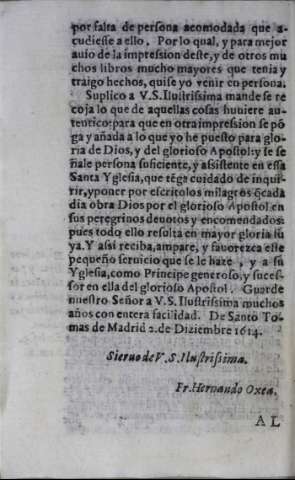 por falta de persona acomodada que a-
cudiesse a ello. Por lo qual, y para mejor
auio de la impression deste, y de otros mu
chos libros mucho mayores que tenia y
traigo hechos, quise yo venir en persona.
Suplico a V.S. Ilustrissima mande se re
coja lo que de aquellas cosas huuiere au-
tentico: para que en otra impression se pō
ga y añada a lo que yo he puesto para glo-
ria de Dios, y del glorioso Apostol: y se se
ñale persona suficiente, y assistente en essa
Santa Yglesia, que tēga cuidado de inqui-
rir, y poner por escrito los milagros q̄ cada
dia obra Dios por el glorioso Apostol en
sus peregrinos deuotos y encomendados:
pues todo ello resulta en mayor gloria su
ya. Y assi reciba, ampare, y fauorezca este
pequeño seruicio que se le haze, y a su
Yglesia, como Principe generoso, y suces-
sor en ella del glorioso Apostol. Guarde
nuestro Señor a V.S. Ilustrissima muchos
años con entera facilidad. De Santo To-
mas de Madrid 2. de Diziembre 1614.
Sieruo de V.S. Ilustrissima.
Fr. Hernando Oxea.
AL